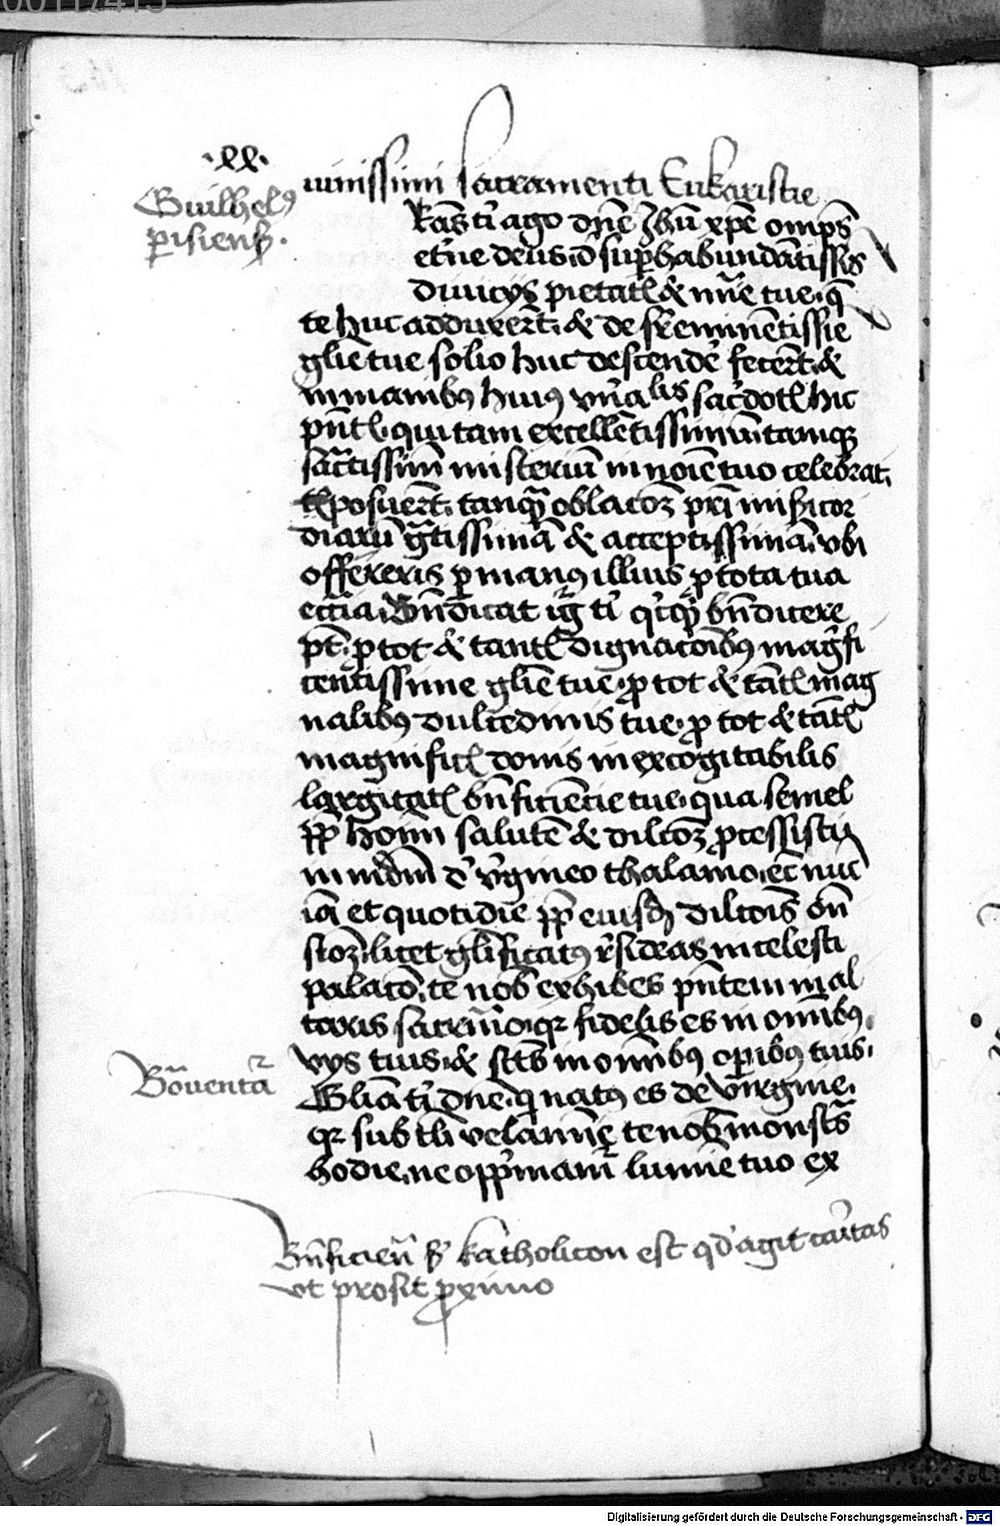 00117415
·xx·
Guilhelꝰ
ꝑisienß.
uinissimi sacramenti Eukaristie
Rãs ti ago dñe Jhũ xp̃e omp̃s
et'ne deus ꝺ suꝑhabundãtissis
diuicijs pietatꝭ & mīe tue. q̃
te huc adduxer̃t. & de sr̃eminẽtissīe
glīe tue solio huc descendē fecer̃t. &
in manibꝰ huiꝰ vīsalis sac'dotꝭ hic
p̃ntꝭ. qui tam excellẽtissimũ. tamqꝫ
sãctissimũ misteriũ in noīe tuo celebrat.
posuer̃t. tanqȝ oblacōꝫ pr̃i mißicor
diarũ g̃tissimã & acceptissimã. vbi
offereris ꝑ manꝰ illius ꝓ tota tua
eccīa. Bñdicat igͥ tͥ qͥcqͥd bñdicere
pt̃. ꝓ tot & tantꝭ dignacōibꝰ mag̃fi
centissime glīe tue. ꝓ tot & tãtꝭ mag
nalibꝰ dulcedinis tue. ꝓ tot & tãtꝭ
magnificꝭ donis inexcogitabilis
largitatꝭ bñficiẽtie tue. qua semel
ꝓp̃ hoīm salutē & dilcōꝫ ꝓcessisti
in mũdũ d' v'gineo thalamo. ec̃ nũc
iã et quotidie ꝓp̃ eiusdꝫ dilcōis oñ
sioꝫ. licet glīficatꝰ r̃sideas in celesti
palacō. te nob̃ exhibes p̃ntem in al
taris sacr̃mo. qꝛ fidelis es in om̃ibꝰ
vijs tuis. & sctũs in om̃ibꝰ oꝑibꝰ tuis.
Bõventa᷑
Glīa tͥ dñe. qͥ natꝰ es de virgine.
qꝛ sub tli velamīe te nob̃ monstãs
hodie. ne opp̃mam᷑ lumīe tuo ex
Bñficien̄ ß katholicon est qd' agit caritas
vt prosit ꝓximo
Digitalisierung gefördert durch die Deutsche Forschungsgemeinschaft - DFG